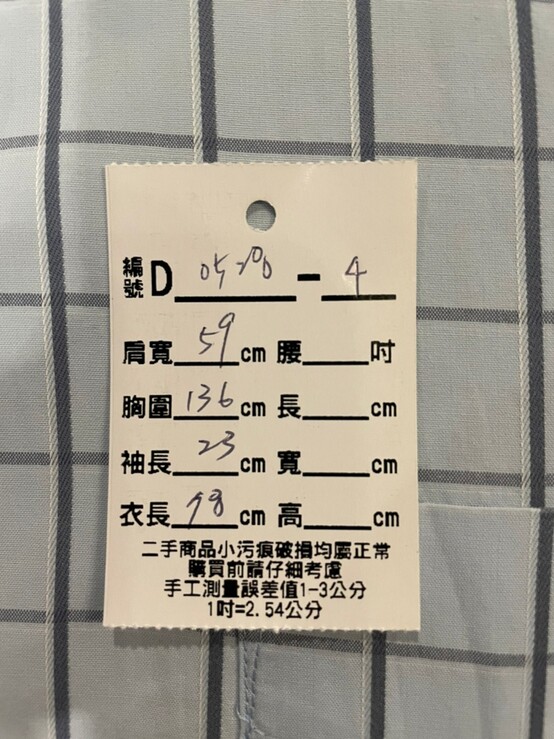 編號D 05200 - 4
肩寬 59 cm 腰____吋
胸圍 136 cm 長____cm
袖長 23 cm 寬____cm
衣長 78 cm 高____cm
二手商品小污痕破損均屬正常
購買前請仔細考慮
手工測量誤差值1-3公分
1吋=2.54公分